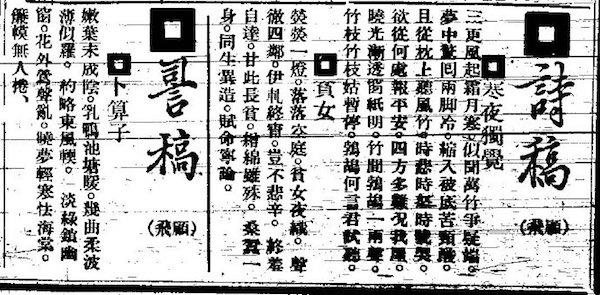 詩稿
(顧飛)
寒夜獨覺
三更風起霜月寒。似聞萬竹爭
夢中驚回兩脚冷。縮入破底苦頻酸。
且從枕上聽風竹。時悲時時號哭。
欲從何處報平安。四方多難況我屋。
曉光漸透窗紙明。竹間鵓鴣一兩聲。
竹枝竹枝姑暫停。鵓鴣何言君試聽。
貧女
熒熒一燈。落落空庭。貧女夜織。聲
徹四鄰。伊軋終宵。豈不悲辛。終羞
自達。甘此長貧。綿雖殊。桑蠶一
身。同生異造。賦命寧論。
詞稿
(顧飛)
卜算子
嫩葉未成陰。乳鴨池塘暖。幾曲柔波
薄似羅。約略東風。 淡綠鎖幽
窗。花外鶯聲亂。曉夢輕寒怯海棠。
簾幙無人捲。